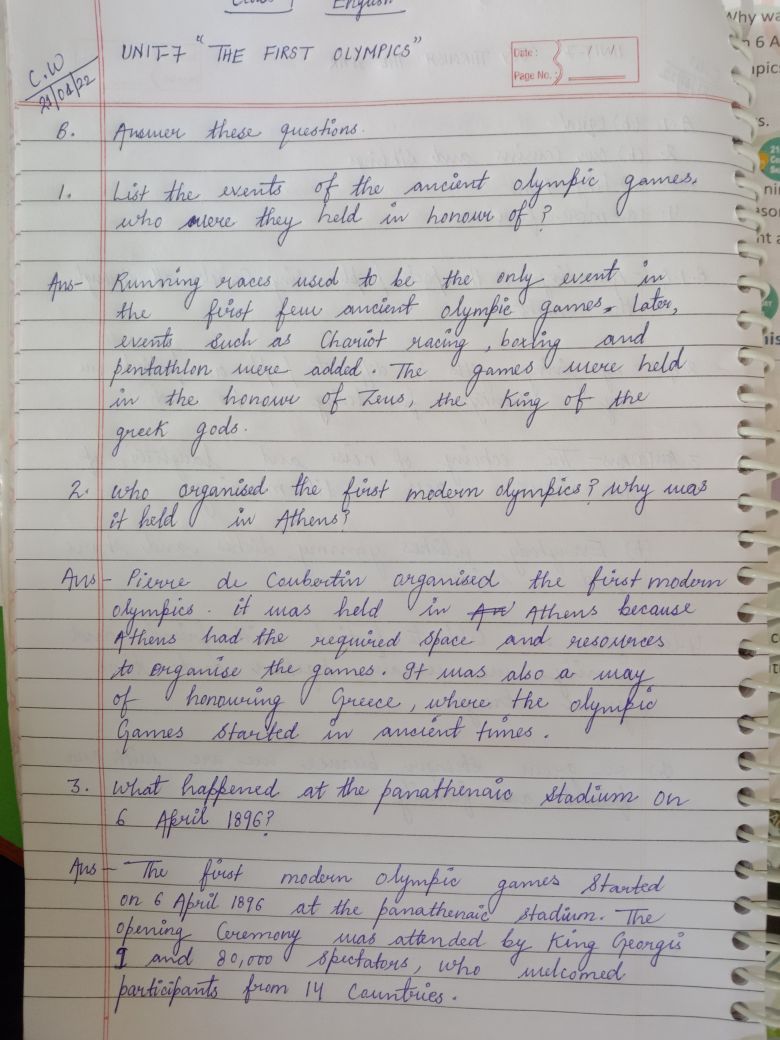 English
UNIT-7 "THE FIRST OLYMPICS"
Date:
Page No.:
C.W
B. Answer these questions.
1. List the events of the ancient olympic games.
who were they held in honour of?
Ans- Running races used to be the only event in
the first few ancient olympic games. Later,
events such as Chariot racing, boxing and
pentathlon were added. The games were held
in the honour of Zeus, the King of the
greek gods.
2. who organised the first modern olympics? why was
it held in Athens?
Ans- Pierre de Coubertin organised the first modern
olympics. it was held in Athens because
Athens had the required space and resources
to organise the games. It was also a way
of honouring Greece, where the olympic
Games started in ancient times.
3. what happened at the panathenaic stadium on
6 April 1896?
Ans- The first modern olympic games started
on 6 April 1896 at the panathenaic stadium. The
opening Ceremony was attended by King Georgis
I and 80,000 spectators, who welcomed
participants from 14 Countries.